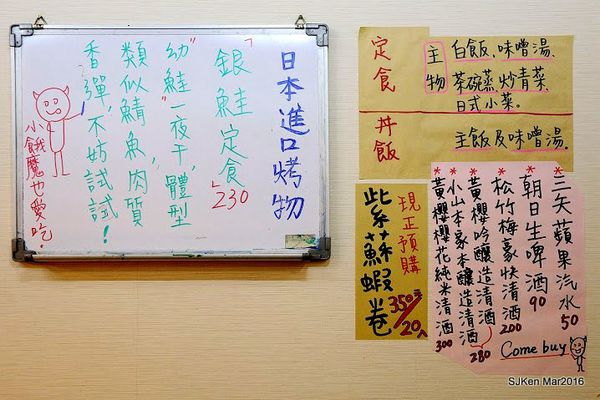 日本進口烤物
「銀鮭定食」230
幼"鮭"一夜干,體型
類似鯖魚,肉質
香彈,不妨試試!
小餓魔也愛吃!
定食
主物
白飯、味噌湯、
茶碗蒸、炒青菜、
日式小菜。
丼飯
主飯及味噌湯。
現正預購
紫蘇蝦卷
350元/20入
三矢蘋果汽水 50
*朝日生啤酒 90
*松竹梅豪快清酒 200
*黃櫻吟釀造清酒
*小山本家本釀造清酒 280
*黃櫻櫻花純米清酒 300
Come buy
SJKen Mar2016